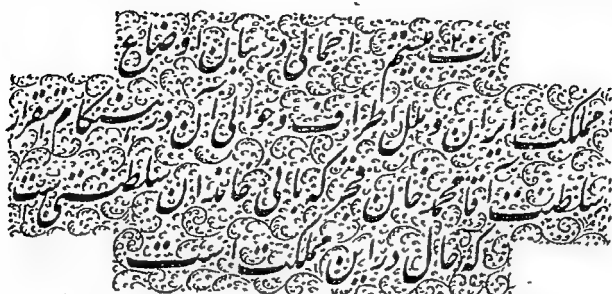 باب بیستم اجمالی در بیان اوضاع
مملکت ایران و ملل اطراف و حوالی آن در هنگام استقرار
سلطنت آقا محمد خان قجر که بانی خاندان سلطنتی است
که حال در این مملکت است